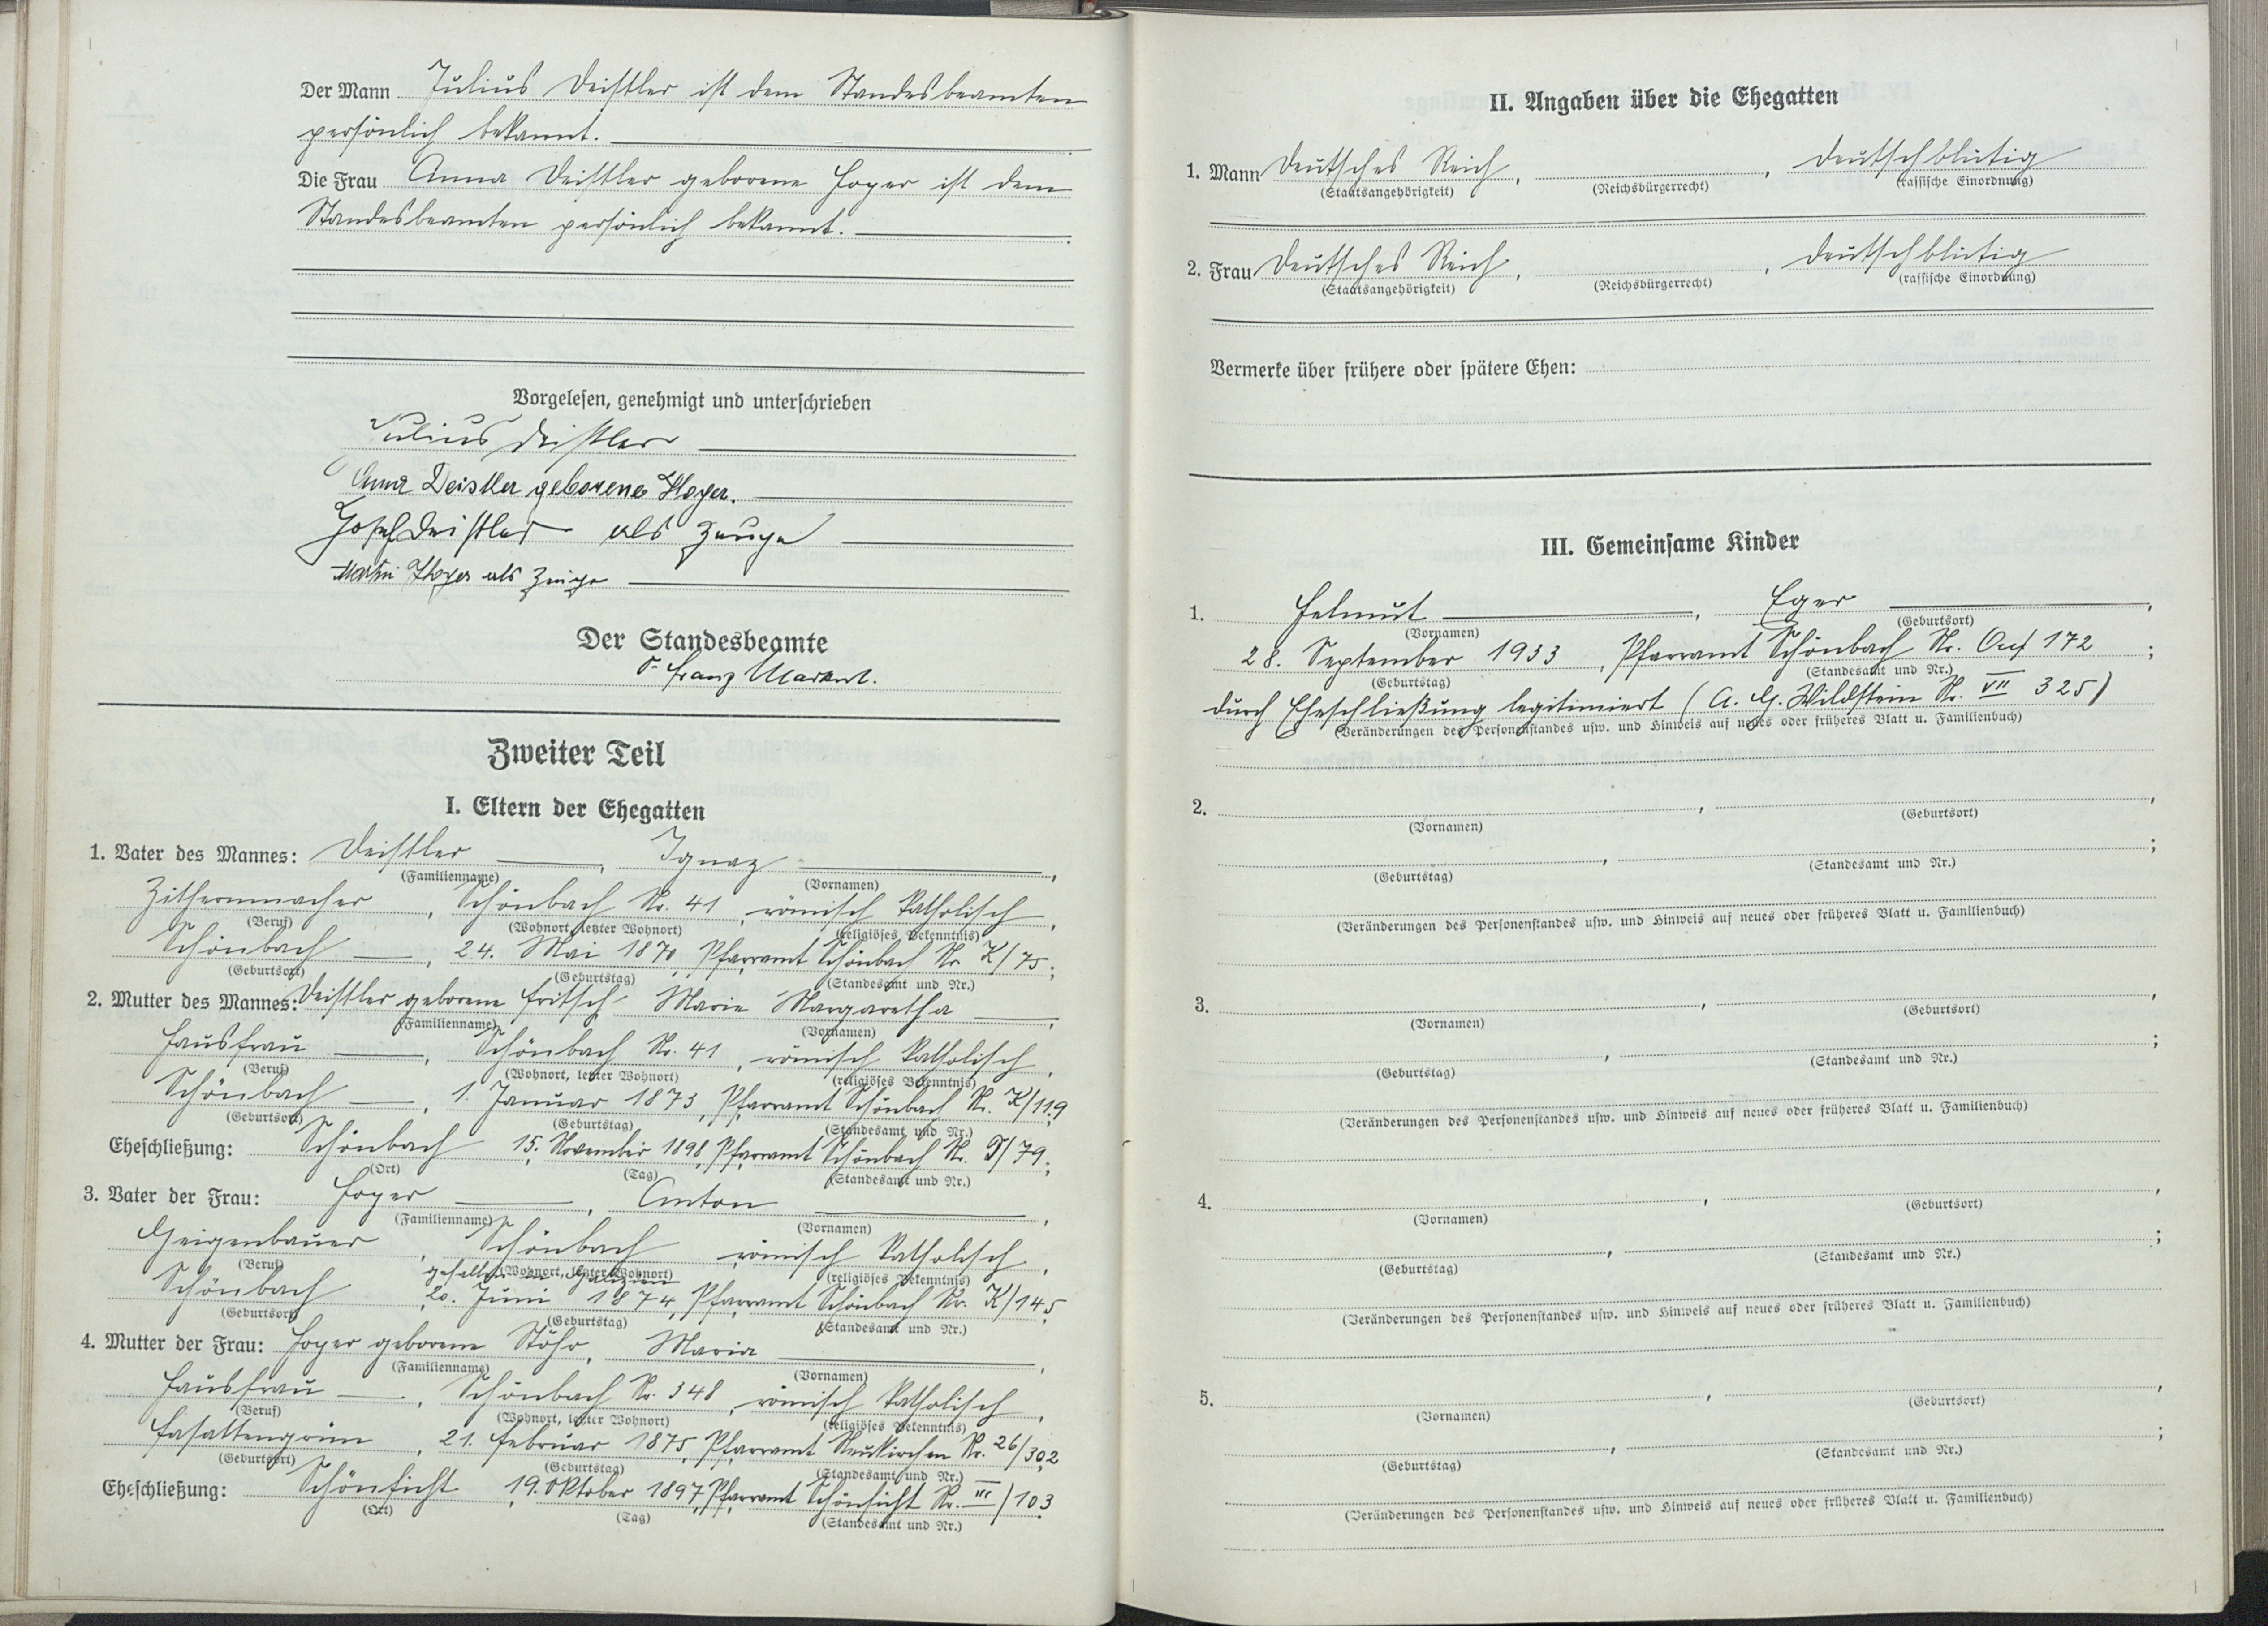 Der Mann Julius Deistler ist dem Standesbeamten
persönlich bekannt.
Die Frau Anna Deistler geborene Hoyer ist dem
Standesbeamten persönlich bekannt.
Vorgelesen, genehmigt und unterschrieben
Julius Deistler
Anna Deistler geborene Hoyer.
Josef Deistler als Zeuge
Hoyer als Zeuge
Der Standesbeamte
Franz
Zweiter Teil
I. Eltern der Ehegatten
1. Vater des Mannes: Deistler, Ignaz,
(Familienname) (Vornamen)
Zithernmacher, Schönbach Nr. 41, römisch katholisch,
(Beruf) (Wohnort, letzter Wohnort) (religiöses Bekenntnis)
Schönbach, 24. Mai 1870, Pfarramt Schönbach Nr. K/75;
(Geburtsort) (Geburtstag) (Standesamt und Nr.)
2. Mutter des Mannes: Deistler geborene Fritsch, Marie Margaretha,
(Familienname) (Vornamen)
Hausfrau, Schönbach Nr. 41, römisch katholisch,
(Beruf) (Wohnort, letzter Wohnort) (religiöses Bekenntnis)
Schönbach, 1. Januar 1873, Pfarramt Schönbach Nr. K/119
(Geburtsort) (Geburtstag) (Standesamt und Nr.)
Eheschließung: Schönbach, 15. November 1898, Pfarramt Schönbach Nr. J/79;
(Ort) (Tag) (Standesamt und Nr.)
3. Vater der Frau: Hoyer, Anton,
(Familienname) (Vornamen)
Geigenbauer, Schönbach, römisch katholisch,
(Beruf) (Wohnort, letzter Wohnort) (religiöses Bekenntnis)
gefallen in Galizien
Schönbach, 20. Juni 1874, Pfarramt Schönbach Nr. K/145
(Geburtsort) (Geburtstag) (Standesamt und Nr.)
4. Mutter der Frau: Hoyer geborene Stöhr, Maria,
(Familienname) (Vornamen)
Hausfrau, Schönbach Nr. 348, römisch katholisch,
(Beruf) (Wohnort, letzter Wohnort) (religiöses Bekenntnis)
Fasattengrün, 21. Februar 1875, Pfarramt Neukirchen Nr. 26/302
(Geburtsort) (Geburtstag) (Standesamt und Nr.)
Eheschließung: Schönficht, 19. Oktober 1897, Pfarramt Schönficht Nr. III/103
(Ort) (Tag) (Standesamt und Nr.)
II. Angaben über die Ehegatten
1. Mann Deutsches Reich, , deutschblütig
(Staatsangehörigkeit) (Reichsbürgerrecht) (rassische Einordnung)
2. Frau Deutsches Reich, , deutschblütig
(Staatsangehörigkeit) (Reichsbürgerrecht) (rassische Einordnung)
Vermerke über frühere oder spätere Ehen:
III. Gemeinsame Kinder
1. Helmut, Eger,
(Vornamen) (Geburtsort)
28. September 1933, Pfarramt Schönbach Nr. 172;
(Geburtstag) (Standesamt und Nr.)
durch Eheschließung legitimiert (A. G. Wildstein Nr. VII 325)
(Veränderungen des Personenstandes usw. und Hinweis auf neues oder früheres Blatt u. Familienbuch)
2. , ,
(Vornamen) (Geburtsort)
, ;
(Geburtstag) (Standesamt und Nr.)
(Veränderungen des Personenstandes usw. und Hinweis auf neues oder früheres Blatt u. Familienbuch)
3. , ,
(Vornamen) (Geburtsort)
, ;
(Geburtstag) (Standesamt und Nr.)
(Veränderungen des Personenstandes usw. und Hinweis auf neues oder früheres Blatt u. Familienbuch)
4. , ,
(Vornamen) (Geburtsort)
, ;
(Geburtstag) (Standesamt und Nr.)
(Veränderungen des Personenstandes usw. und Hinweis auf neues oder früheres Blatt u. Familienbuch)
5. , ,
(Vornamen) (Geburtsort)
, ;
(Geburtstag) (Standesamt und Nr.)
(Veränderungen des Personenstandes usw. und Hinweis auf neues oder früheres Blatt u. Familienbuch)